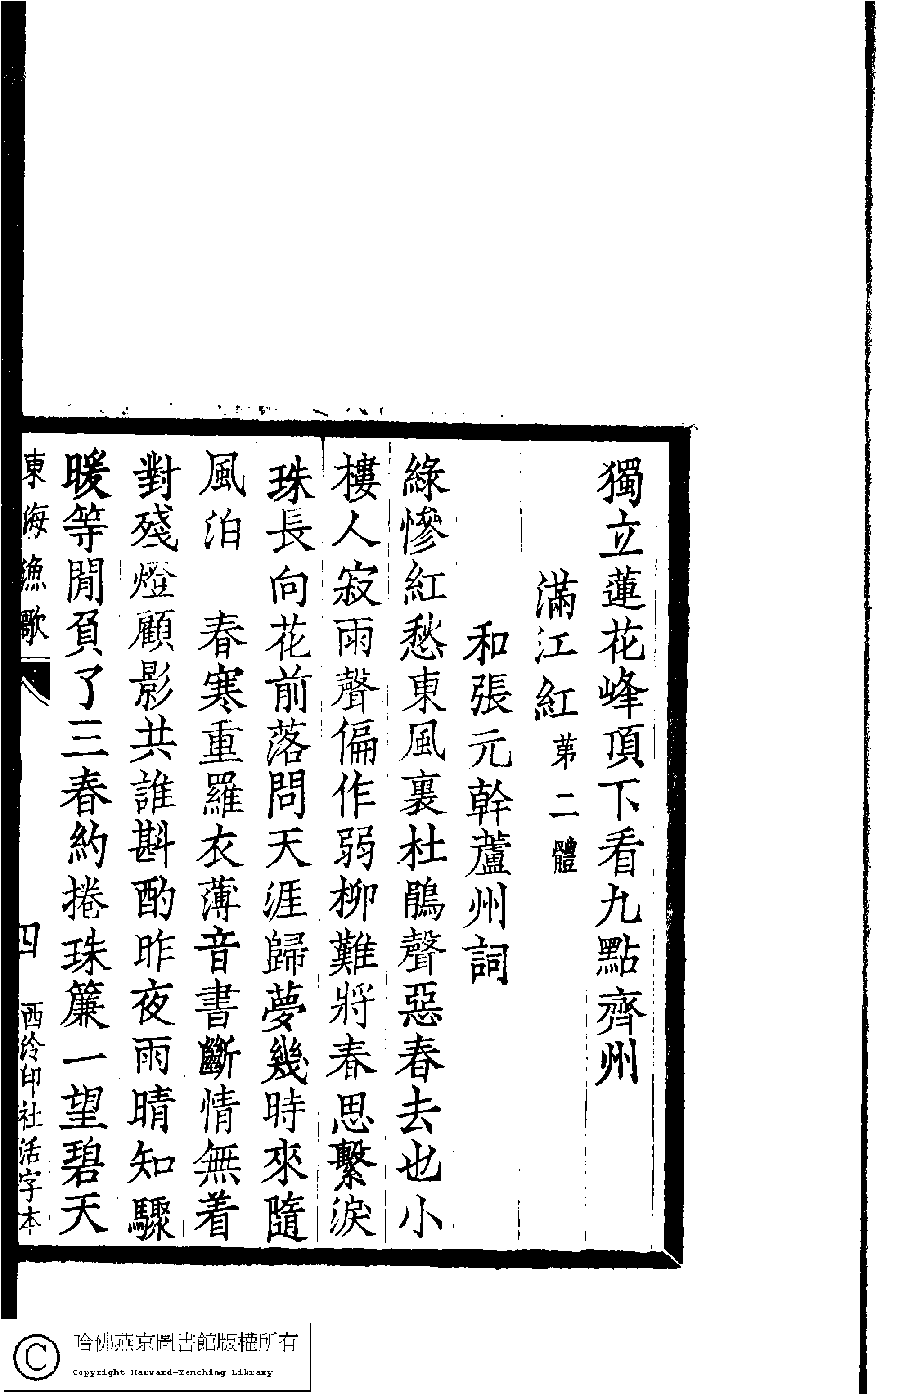 獨立蓮花峰頂下看九點齊州
滿江紅 苐二體
和張元幹蘆州詞
綠慘紅愁東風裏杜鵑聲惡春去也小
樓人寂雨聲偏作弱柳難將春思繫淚
珠長向花前落問天涯歸夢幾時來隨
風泊 春寒重羅衣薄音書斷情無着
對殘燈顧影共誰斟酌昨夜雨晴知驟
暖等閒負了三春約捲珠簾一望碧天
東海漁歌 四 西泠印社活字本
哈佛燕京圖書館版權所有
Copyright Harvard-Yenching Library